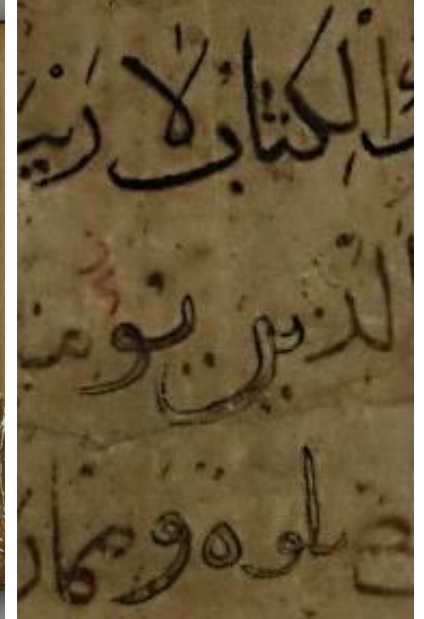 الكتاب لا ريب
الذين يؤمنو
صلوة ومما ر